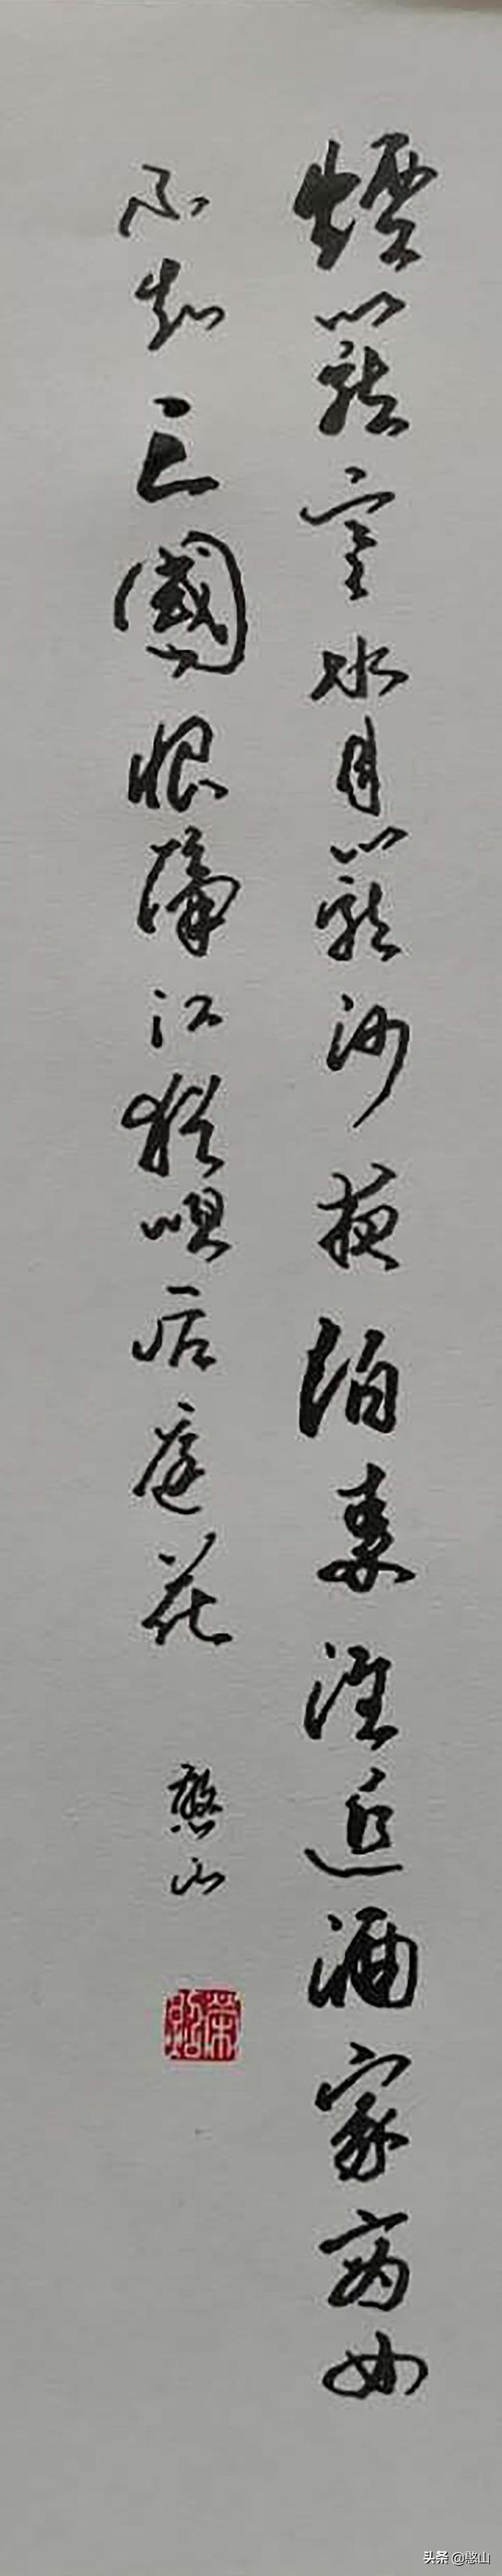 煙籠寒水月籠沙夜泊秦淮近酒家商女
不知亡國恨隔江猶唱后庭花 憨山
头条 @憨山